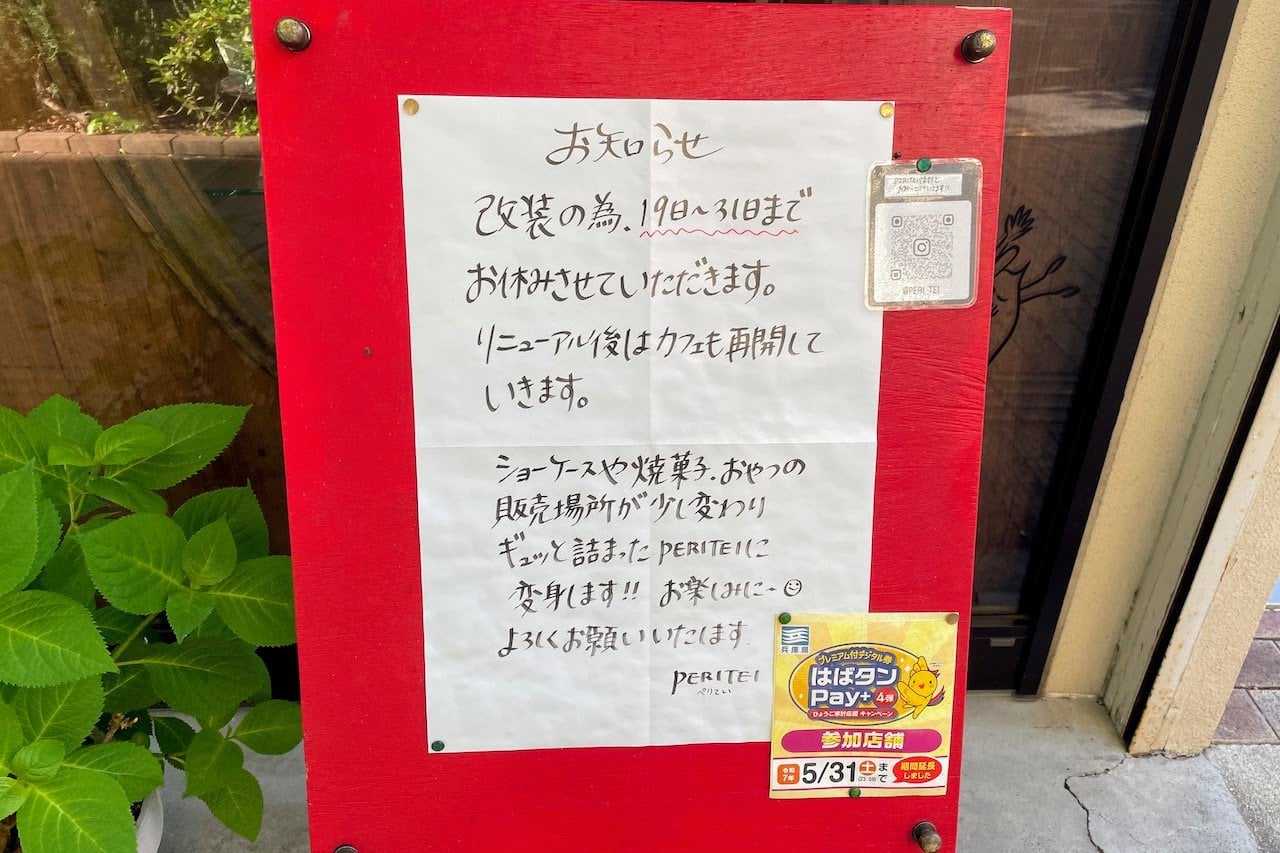 お知らせ
改装の為、19日～31日まで
お休みさせていただきます。
リニューアル後はカフェも再開して
いきます。
ショーケースや焼菓子、おやつの
販売場所が少し変わり
ギュッと詰まったPERITEIに
変身します!! お楽しみに～
よろしくお願いいたします
PERITEI
ぺりてい
@PERI_TEI
兵庫県
プレミアム付デジタル券
はばタン
Pay+ 4弾
ひょうご家計応援 キャンペーン
参加店舗
令和7年 5/31 土 (23:59) まで
期間延長しました